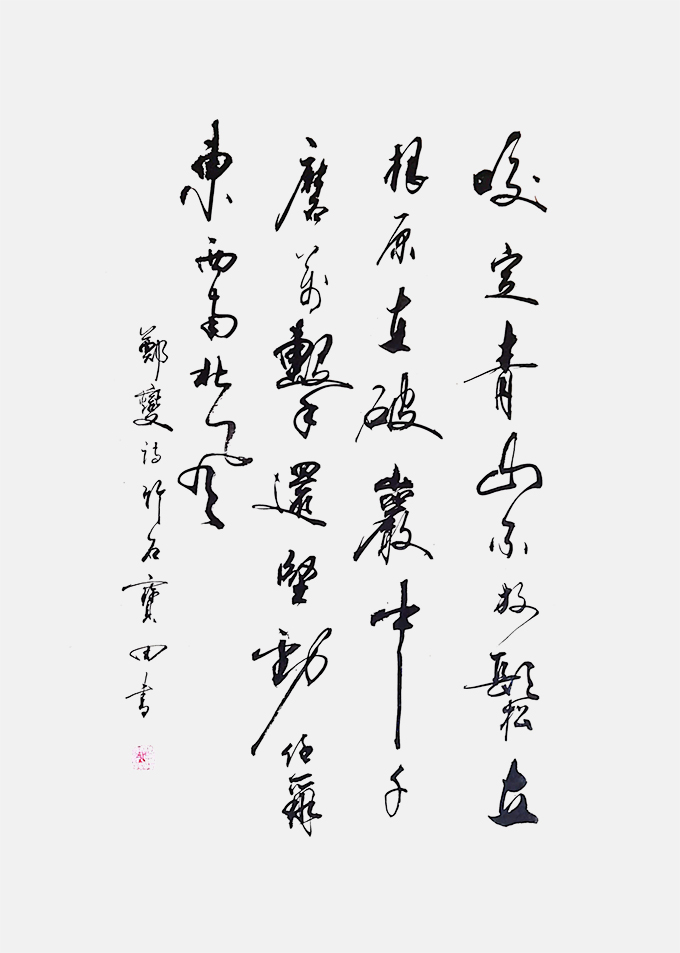 咬定青山不放鬆立
根原在破巖中千
磨萬擊還堅勁任爾
東西南北風
鄭燮詩竹石寶田書